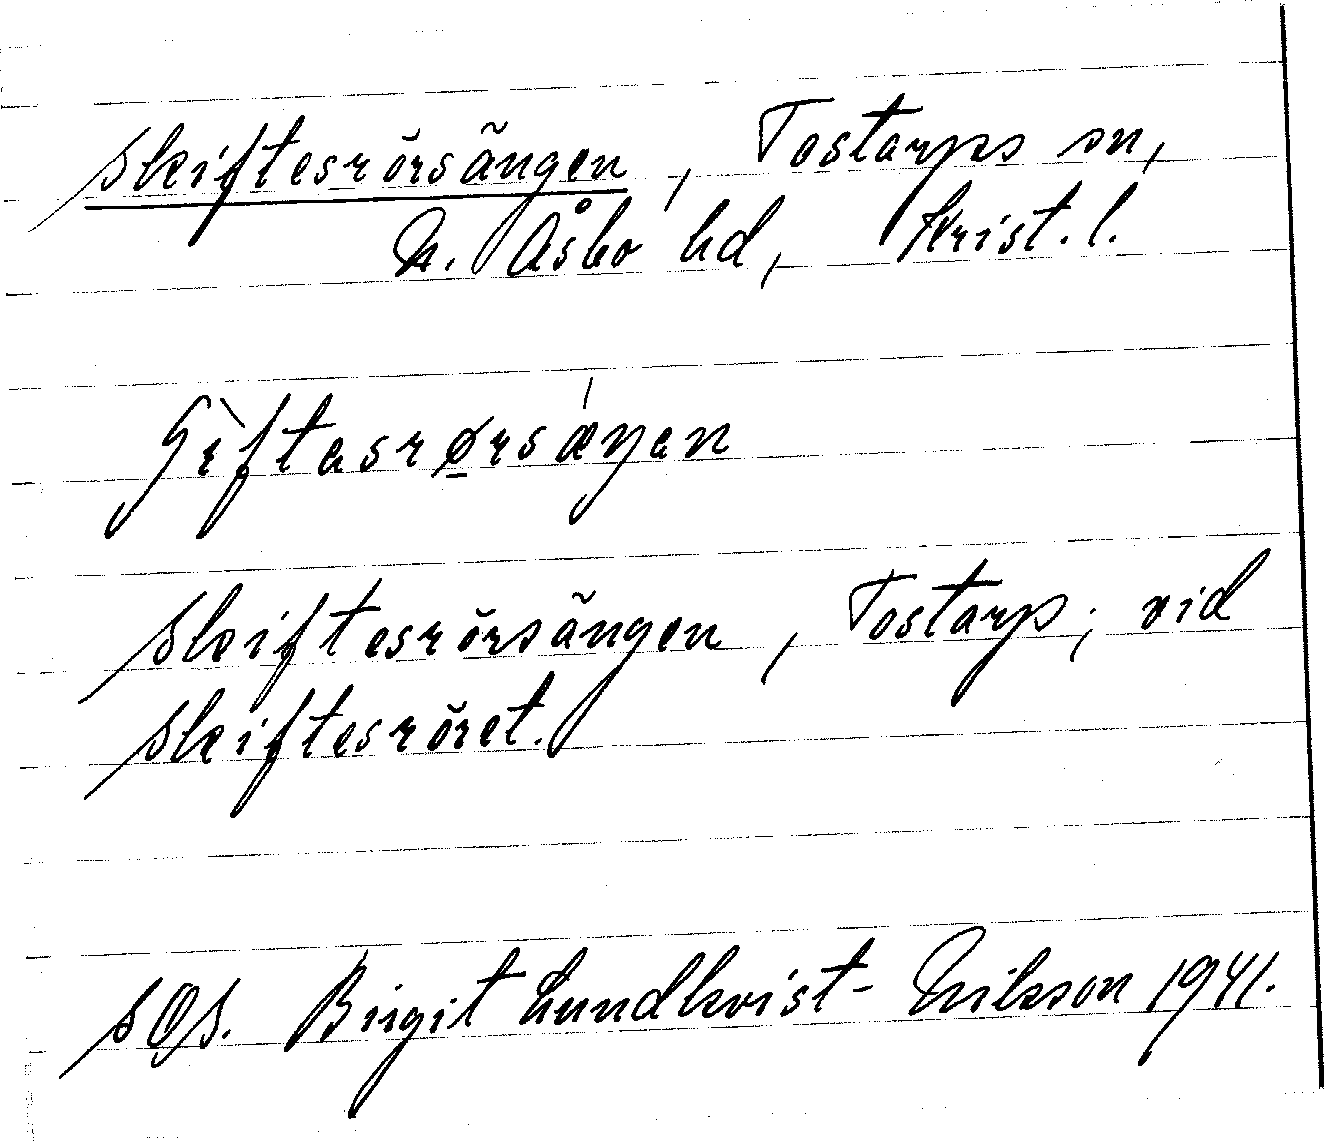 Skiftesrörsängen, Tostarps sn,
N. Åsbo hd, Krist. l.
Skiftesrörsängen, Tostarp; vid
Skiftesröret.
SOS. Birgit Lundkvist-Nilsson 1941.